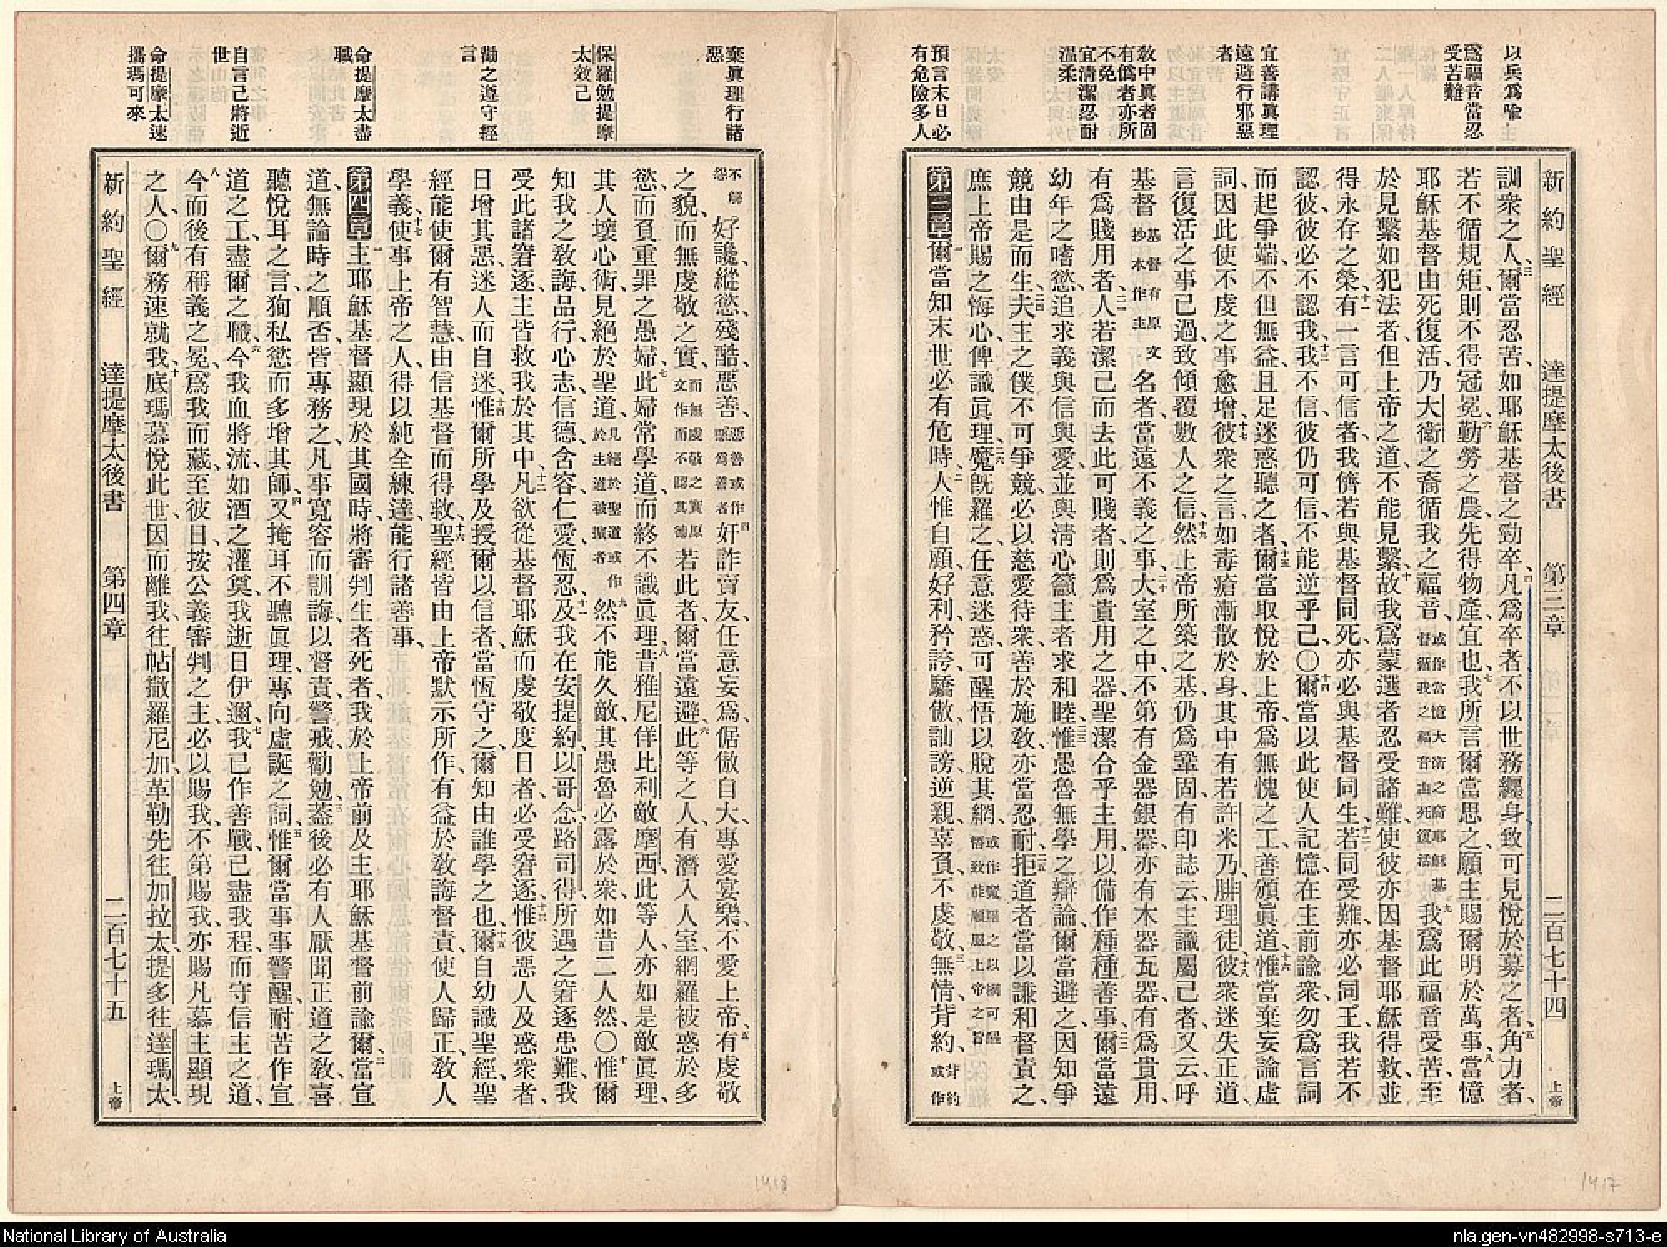 以兵爲喩
爲福音當忍
受苦難
宜善講眞理
遠避行邪惡
者
敎中眞者固
有僞者亦所
不免
宜淸潔忍耐
溫柔
預言末日必
有危險多人
新約聖經 達提摩太後書 第三章 二百七十四 上帝
訓衆之人、爾當忍苦、如耶穌基督之勁卒、凡爲卒者、不以世務纏身、致可見悅於募之者、角力者、
若不循規矩、則不得冠冕、勤勞之農、先得物產、宜也、我所言爾當思之、願主賜爾明於萬事、當憶
耶穌基督由死復活、乃大衛之裔、循我之福音、或作當憶大衛之裔耶穌基督循我之福音由死復活 我爲此福音受苦、至
於見繫如犯法者、但上帝之道、不能見繫、故我爲蒙選者忍受諸難、使彼亦因基督耶穌得救、並
得永存之榮、有一言可信者、我儕若與基督同死、亦必與基督同生、若同受難、亦必同王、我若不
認彼、彼必不認我、我不信、彼仍可信、不能逆乎己、〇爾當以此使人記憶、在主前諭衆、勿爲言詞
而起爭端、不但無益、且足迷惑聽之者、爾當取悅於上帝、爲無愧之工、善頒眞道、惟當棄妄論虛
詞、因此使不虔之事愈增、彼衆之言、如毒瘡漸散於身、其中有若許米乃、腓理徒、彼衆迷失正道、
言復活之事已過、致傾覆數人之信、然上帝所築之基、仍爲鞏固、有印誌云、主識屬己者、又云、呼
基督 基督有原文抄本作主 名者、當遠不義之事、大室之中、不第有金器銀器、亦有木器瓦器、有爲貴用、
有爲賤用者、人若潔己而去此可賤者、則爲貴用之器、聖潔合乎主用、以備作種種善事、爾當遠
幼年之嗜慾、追求義與信與愛、並與淸心籲主者求和睦、惟愚魯無學之辯論、爾當避之、因知爭
競由是而生、夫主之僕不可爭競、必以慈愛待衆、善於施敎、亦當忍耐、拒道者、當以謙和督責之、
庶上帝賜之悔心、俾識眞理、魔旣羅之任意迷惑、可醒悟以脫其網、
第三章 爾當知末世必有危時、人惟自顧、好利、矜誇、驕傲、訕謗、逆親、辜負、不虔敬、無情、背約、背約或作
棄眞理行諸
惡
保羅勉提摩
太效己
勸之遵守經
言
命提摩太盡
職
自言己將近
世
命提摩太速
攜瑪可來
不解怨 好讒、縱慾、殘酷、惡善、惡善或作惡爲善者 奸詐、賣友、任意妄爲、倨傲自大、專愛宴樂、不愛上帝、有虔敬
之貌、而無虔敬之實、而無虔敬之實原文作而不認其德 若此者、爾當遠避、此等之人、有潛入人室、網羅被惑於多
慾、而負重罪之愚婦、此婦常學道、而終不識眞理、昔雅尼佯比利敵摩西、此等人亦如是敵眞理、
其人壞心術、見絕於聖道、見絕於聖道或作於主道被擯者 然不能久敵、其愚魯必露於衆、如昔二人然、〇惟爾
知我之敎誨、品行、心志、信德、含容、仁愛、恆忍、及我在安提約、以哥念、路司得、所遇之窘逐患難、我
受此諸窘逐、主皆救我於其中、凡欲從基督耶穌而虔敬度日者、必受窘逐、惟彼惡人及惑衆者、
日增其惡、迷人而自迷、惟爾所學及授爾以信者、當恆守之、爾知由誰學之也、爾自幼識聖經、聖
經能使爾有智慧、由信基督而得救、聖經皆由上帝默示所作、有益於敎誨督責、使人歸正、敎人
學義、使事上帝之人、得以純全練達、能行諸善事、
第四章 主耶穌基督顯現於其國時、將審判生者死者、我於上帝前、及主耶穌基督前諭爾、當宣
道、無論時之順否、皆專務之、凡事寬容而訓誨、以督責、警戒、勸勉、蓋後必有人厭聞正道之敎、喜
聽悅耳之言、狥私慾而多增其師、又掩耳不聽眞理、專向虛誕之詞、惟爾當事事警醒、耐苦、作宣
道之工、盡爾之職、今我血將流、如酒之灌奠、我逝日伊邇、我已作善戰、已盡我程、而守信主之道、
今而後有稱義之冕、爲我而藏、至彼日、按公義審判之主、必以賜我、不第賜我、亦賜凡慕主顯現
之人、〇爾務速就我、底瑪慕悅此世、因而離我、往帖撒羅尼加、革勒先往加拉太、提多往達瑪太、
新約聖經 達提摩太後書 第四章 二百七十五 上帝
1417
1418
National Library of Australia
nla.gen-vn482998-s713-e